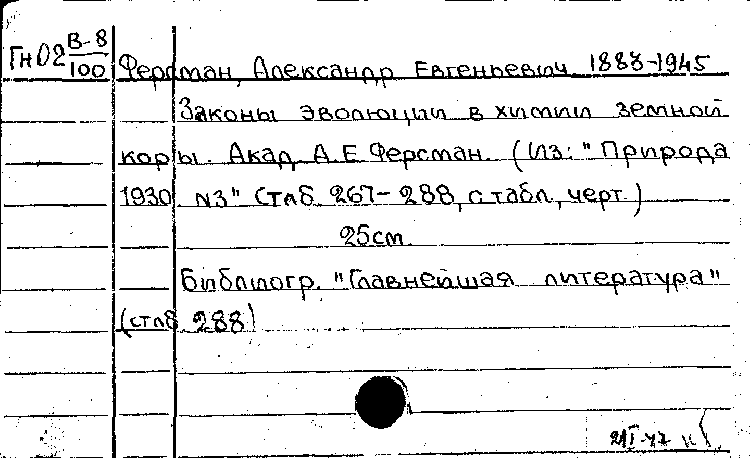 ГнО2 В-8/100 Ферсман, Александр Евгеньевич 1888-1945
Законы эволюции в химии земной
коры. Акад. А.Е Ферсман. (Из: "Природа
1930 N3" Стлб 267-288, с табл., черт.)
25cm.
Библиогр. "Главнейшая литература"
(стлб 288)